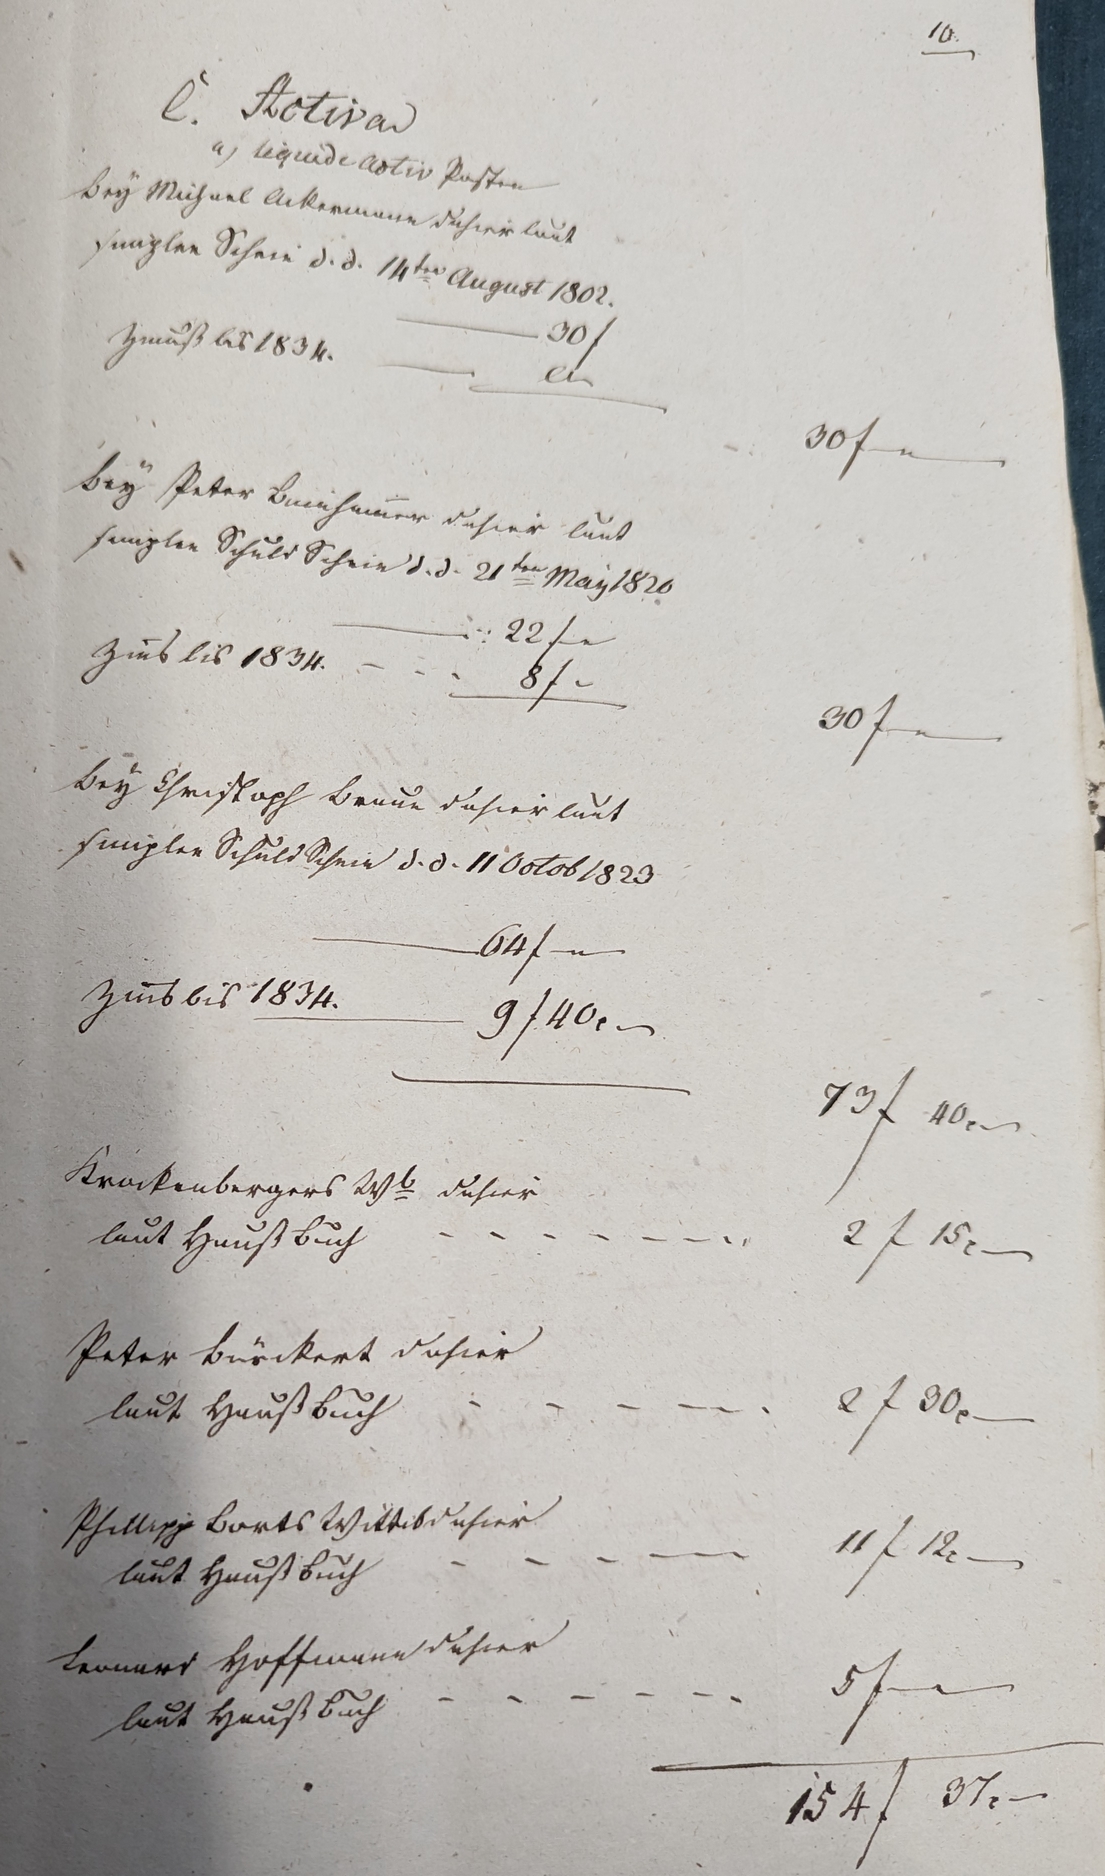 10.
C. Activa
a) liquide Activ Posten
Bey Michael Ackermann dahier laut
simplen Schein d. d. 14ten August 1802.
30 f
Zinnß bis 1834.
30 f —
Bey Peter dahier laut
simplen Schuld Schein d. d. 21ten May 1820
22 f —
Zins bis 1834. - - - 8 f —
30 f —
Bey Christoph Braun dahier laut
simplen Schuld Schein d. d. 11 Octob 1823
64 f —
Zins bis 1834. 9 f 40 x
73 f 40 x
Krockenbergers Wb dahier
laut Hauß Buch - - - - - - - 2 f 15 x
Peter Bürckert dahier
laut Hauß Buch - - - - - - 2 f 30 x
Phillipp Borts Wittib dahier
laut Hauß Buch - - - - 11 f 12 x
Leonard Hoffmann dahier
laut Hauß Buch - - - - - - 5 f —
154 f 37 x